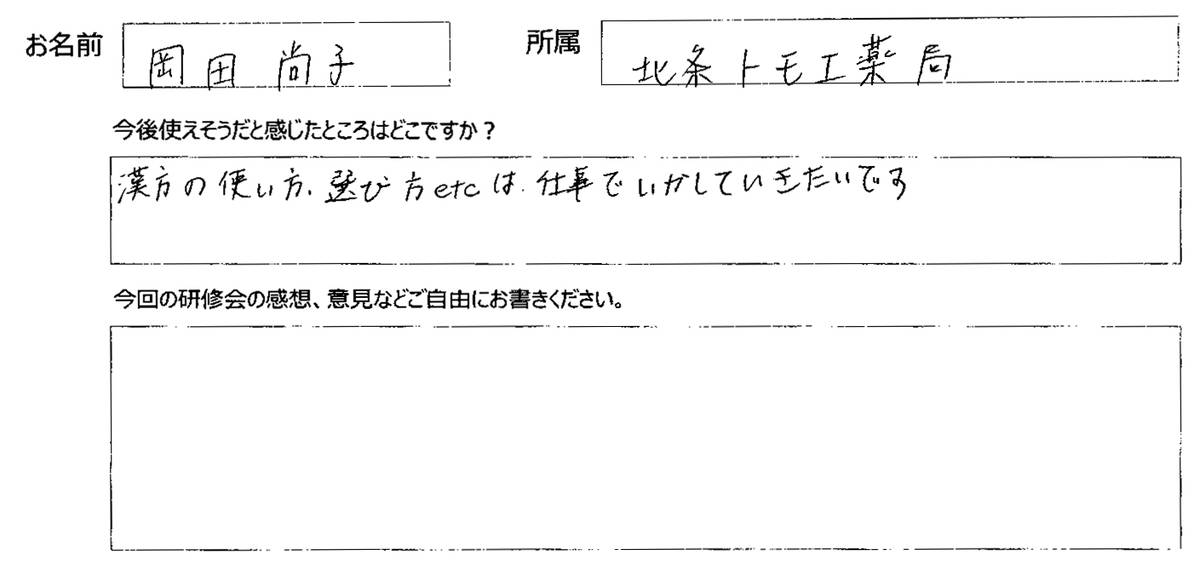 お名前 岡田 尚子 所属 北条トモエ薬局
今後使えそうだと感じたところはどこですか?
漢方の使い方、選び方etcは、仕事でいかしていきたいです
今回の研修会の感想、意見などご自由にお書きください。